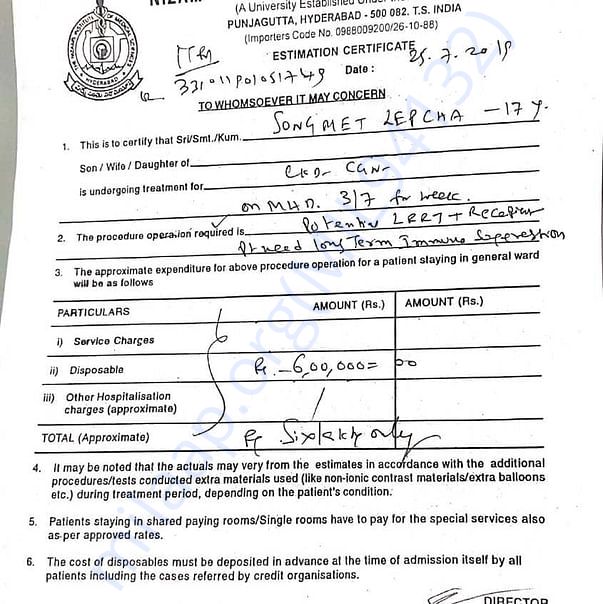 (A University Established Under the
PUNJAGUTTA, HYDERABAD - 500 082. T.S. INDIA
(Importers Code No. 0988009200/26-10-88)
ESTIMATION CERTIFICATE
Date : 25.7.2019
TO WHOMSOEVER IT MAY CONCERN
1. This is to certify that Sri/Smt./Kum. SONGMET LEPCHA - 17 y.
Son / Wife / Daughter of
is undergoing treatment for CKD CGN
on MHD. 3/7 for week.
2. The procedure operation required is Potential LRRT +
Pt need long Term Immuno Suppression
3. The approximate expenditure for above procedure operation for a patient staying in general ward
will be as follows
PARTICULARS AMOUNT (Rs.) AMOUNT (Rs.)
i) Service Charges
ii) Disposable 6,00,000= 00
iii) Other Hospitalisation
charges (approximate)
TOTAL (Approximate) Six lakh only
4. It may be noted that the actuals may very from the estimates in accordance with the additional
procedures/tests conducted extra materials used (like non-ionic contrast materials/extra balloons
etc.) during treatment period, depending on the patient's condition.
5. Patients staying in shared paying rooms/Single rooms have to pay for the special services also
as per approved rates.
6. The cost of disposables must be deposited in advance at the time of admission itself by all
patients including the cases referred by credit organisations.
DIRECTOR